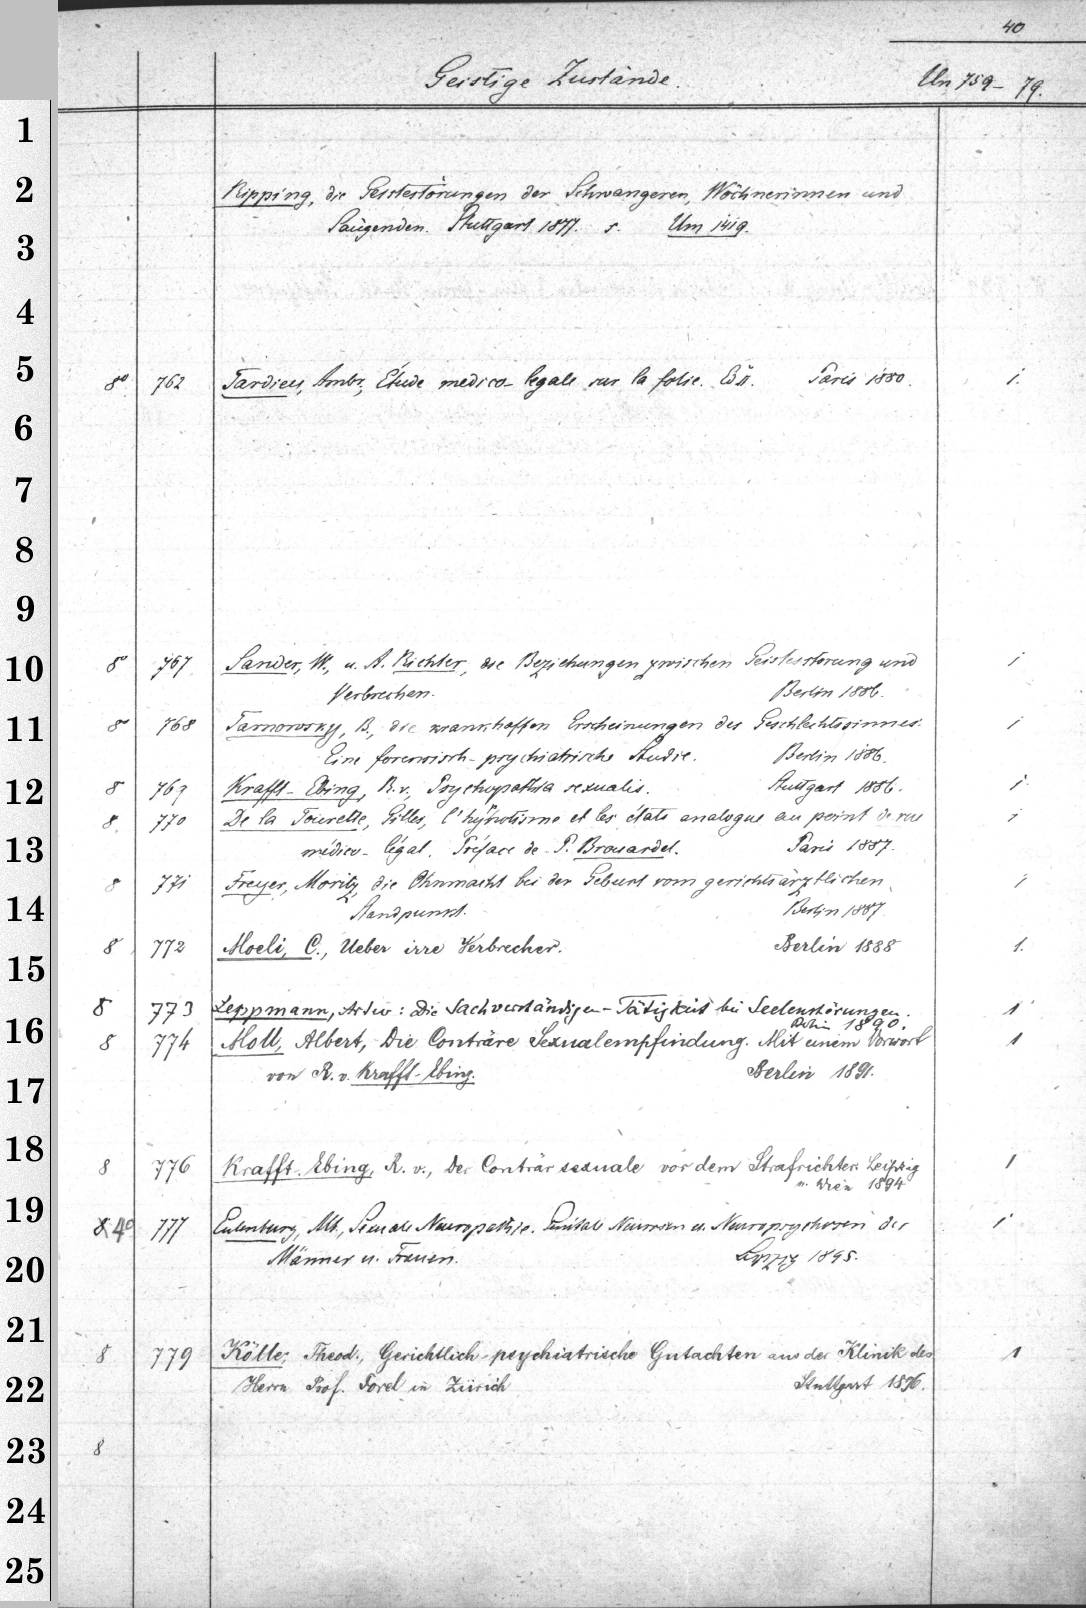 40
Geistige Zustände. Un 759– 79.
1
2
Ripping, die Geistestörungen der Schwangeren, Wöchnerinnen und
Säugenden. Stuttgart 1877. s. Um 1419.
3
4
5
8° 762 Tardieu, Ambr., Étude medico-legale sur la folie. Ed II. Paris 1880. 1.
6
7
8
9
10
8° 767 Sander, W., u. A. Richter, die Beziehungen zwischen Geistesstörung und 1
Verbrechen. Berlin 1886.
11
8° 768 Tarnowsky, B., die krankhaften Erscheinungen des Geschlechtssinnes. 1
Eine forensisch-psychiatrische Studie. Berlin 1886.
12
8 769 Krafft-Ebing, R. v. Psychopathia sexualis. Stuttgart 1886. 1.
8. 770 De la Tourette, Gilles, l'hypnotisme et les états analogue au point de vue 1
13
médico-légal. Préface de P. Brouardel. Paris 1887.
8 771 Freyer, Moritz, die Ohnmacht bei der Geburt vom gerichtsärztlichen 1
14
Standpunkt. Berlin 1887.
8 772 Moeli, C., Ueber irre Verbrecher. Berlin 1888 1.
15
8 773 Leppmann, : Die Sachverständigen-Tätigkeit bei Seelenstörungen. 1
Berlin 1890.
16
8 774 Moll, Albert, Die Conträre Sexualempfindung. Mit einem Vorwort 1
von R. v. Krafft-Ebing. Berlin 1891.
17
18
8 776 Krafft-Ebing, R. v., Der Conträrsexuale vor dem Strafrichter. Leipzig 1
u. Wien 1894
19
8 4° 777 Eulenburg, Alb., Sexuale Neuropathie. Genitale Neurosen u. Neuropsychosen der 1
20
Männer u. Frauen. Leipzig 1895.
21
8 779 Kölle, Theod., Gerichtlich-psychiatrische Gutachten aus der Klinik des 1
22
Herrn Prof. Forel in Zürich Stuttgart 1896.
23
8
24
25